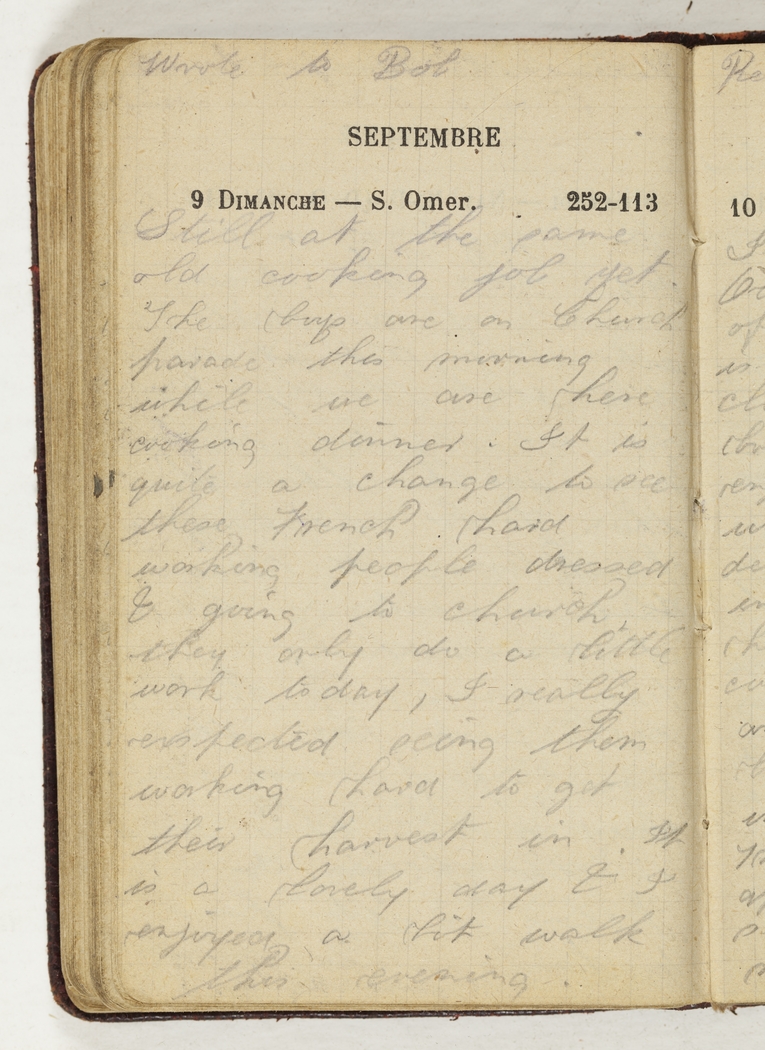 Wrote to Bob
SEPTEMBRE
9 DIMANCHE — S. Omer. 252-113
Still at the same
old cooking job yet.
The boys are on Church
parade this morning
while we are here
cooking dinner. It is
quite a change to see
these French hard
working people dressed
& going to church,
they only do a little
work today, I really
expected seing them
working hard to get
their harvest in. It
is a lovely day & I
enjoyed a bit walk
this evening.
Re
10
of
is
cl
w
de
in